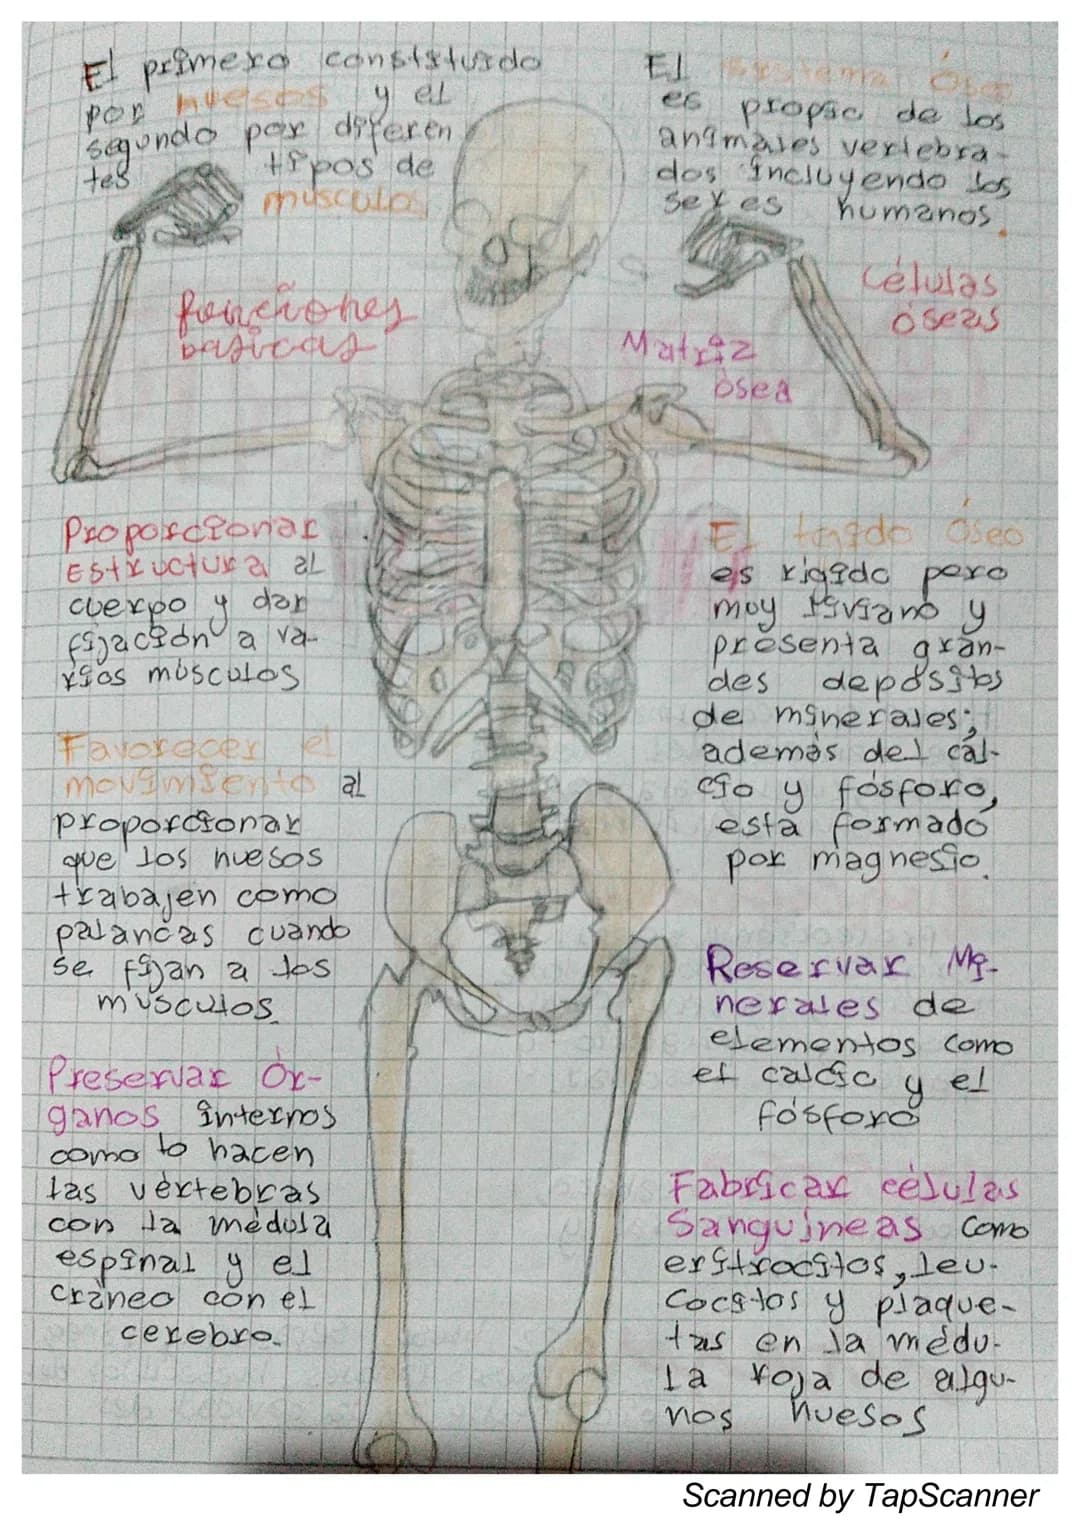 El primero constituido
por huesos y el
segundo por diferen
tes tipos de
músculos
El sistema Óseo
es propio de los
animales vertebra-
dos incluyendo los
seres humanos.
Células
óseas
funciones
basicas
Matriz
ósea
Proporcionar
Estructura al
cuerpo y dar
fijación a va-
rios músculos
Favorecer el
movimiento al
proporcionar
que los huesos
trabajen como
palancas cuando
se fijan a los
músculos.
Preservar Ór-
ganos internos
como lo hacen
las vértebras
con la médula
espinal y el
cráneo con el
cerebro.
El tejido Óseo
es rigido pero
muy liviano y
presenta gran-
des depósitos
de minerales;
además del cal-
cio y fósforo,
esta formado
por magnesio.
Reservar Mi-
nerales de
elementos como
el calcio y el
fósforo
Fabricar células
Sanguíneas como
eritrocitos, leu-
cocitos y plaque-
tas en la médu-
la roja de algu-
nos huesos
Scanned by TapScanner